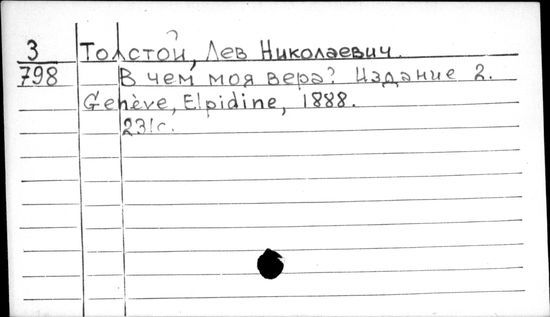 3 Толстой, Лев Николаевич.
798 В чем моя вера? Издание 2.
Genève, Elpidine, 1888.
231с.